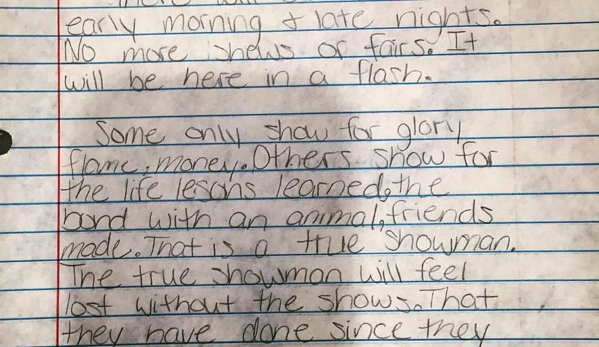 early morning & late nights.
No more shews or fairs. It
will be here in a flash.
Some only show for glory
flame, money. Others show for
the life lesons learned, the
bond with an animal, friends
made. That is a true showman.
The true showman will feel
lost without the shows. That
they have done since they